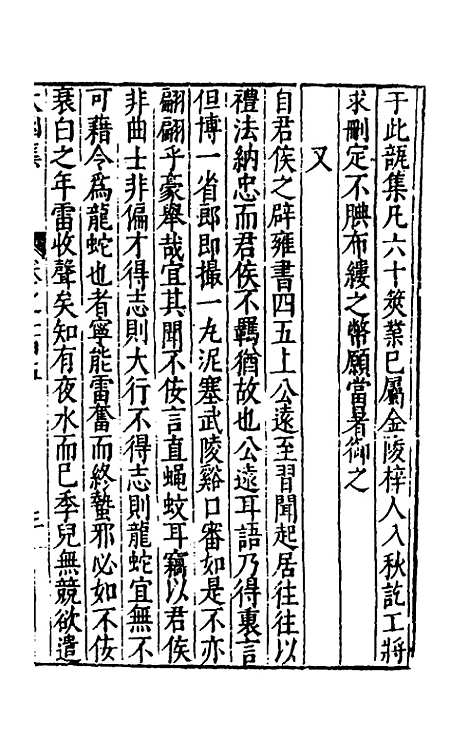 于此瓿集凡六十筴業已屬金陵梓人入秋訖工將
求刪定不腆布縷之幣願當者御之
又
自君侯之辟雍書四五上公遠至習聞起居往往以
禮法納忠而君侯不羈猶故也公遠耳語乃得裏言
但博一省郎即撮一丸泥塞武陵谿口審如是不亦
翩翩乎豪舉哉宜其聞不佞言直蝇蚊耳竊以君侯
非曲士非偏才得志則大行不得志則龍蛇宜無不
可藉令爲龍蛇也者寧能雷奮而終蟄邪必如不佞
衰白之年雷收聲矣知有夜水而已季兒無競欲遣